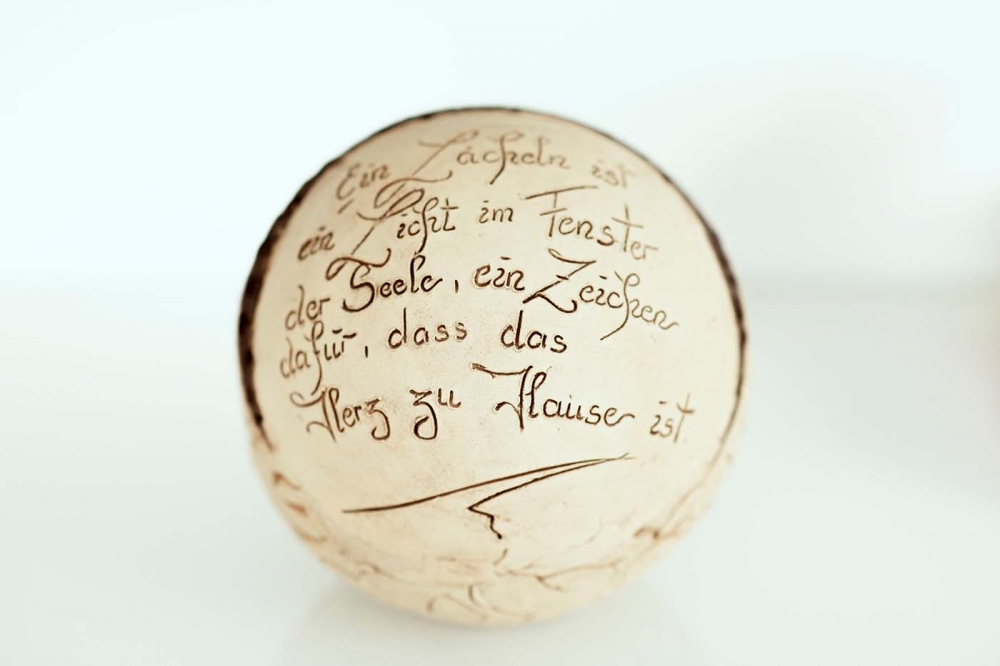 Ein Lächeln ist
ein Licht im Fenster
der Seele, ein Zeichen
dafür, dass das
Herz zu Hause ist.